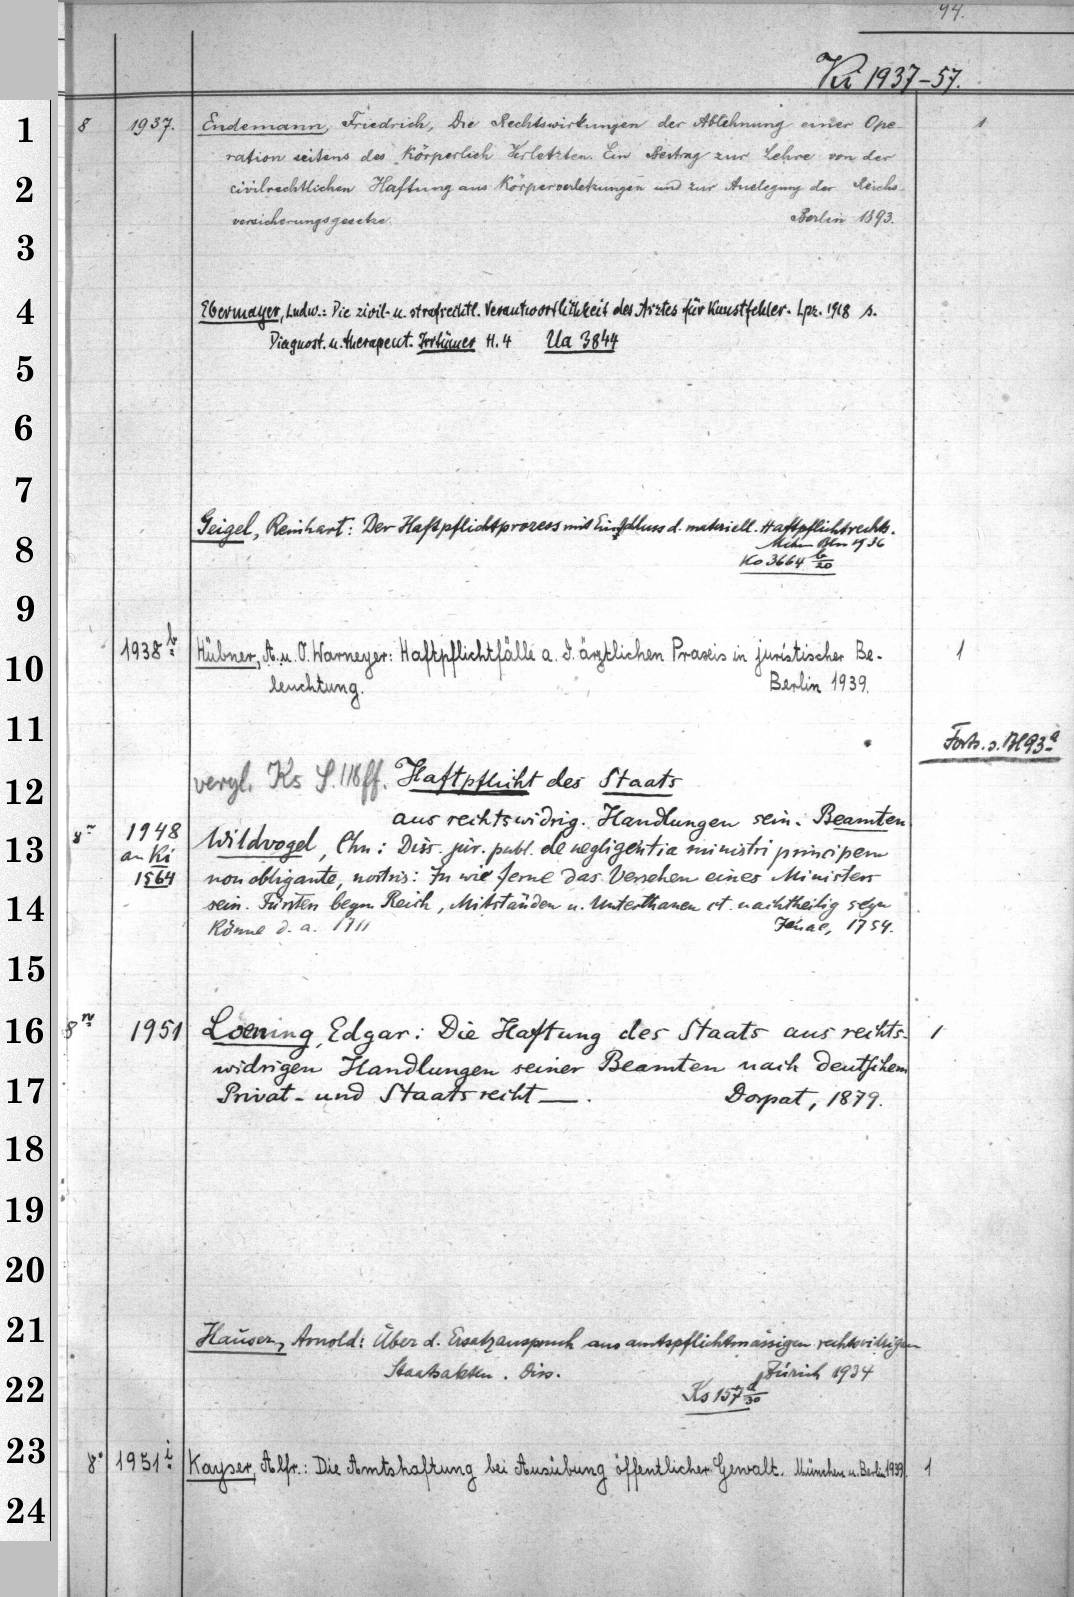 94.
Ki 1937-57.
1
8 1937. Endemann, Friedrich, Die Rechtswirkungen der Ablehnung einer Ope- 1
ration seitens des körperlich Verletzten. Ein Beitrag zur Lehre von der
2
civilrechtlichen Haftung aus Körperverletzungen und zur Auslegung der Reichs-
versicherungsgesetze. Berlin 1893.
3
4
Ebermayer, Ludw.: Die zivil- u. strafrechtl. Verantwortlichkeit des Arztes für Kunstfehler. Lpz. 1918 s.
Diagnost. u. therapeut. Irrtümer H. 4 Ua 3844
5
6
7
Geigel, Reinhart: Der Haftpflichtprozess mit Einschluss d. materiell. Haftpflichtrechts.
8
Mchn Bln 1936
Ko 3664 b/20
9
1938 b. Hübner, A. u. O. Warneyer: Haftpflichtfälle a. d. ärztlichen Praxis in juristischer Be- 1
10
leuchtung. Berlin 1939.
11
Forts. s. Bl 93 a
12
vergl. Ks S. 118 ff. Haftpflicht des Staats
aus rechtswidrig. Handlungen sein. Beamten
13
1948 Wildvogel, Chn: Diss. jur. publ. de negligentia ministri principem
an Ki
1564 non obligante, : In wie ferne das Versehen eines Ministers
14
sein. Fürsten begm Reich, Mitständen u. Unterthanen nachtheilig seyn
Könne d. a. 1711 Jenae, 1754.
15
16
8 1951 Loening, Edgar: Die Haftung des Staats aus rechts- 1
widrigen Handlungen seiner Beamten nach deutschem
17
Privat- und Staatsrecht —. Dorpat, 1879.
18
19
20
21
Hauser, Arnold: Über d. Ersatzanspruch aus amtspflichtmässigen rechtswidrigen
22
Staatsakten. Diss. Zürich 1934
Ks 157 d/30
23
8° 1951 i. Kayser, Alfr.: Die Amtshaftung bei Ausübung öffentlicher Gewalt. München u. Berlin 1939. 1
24